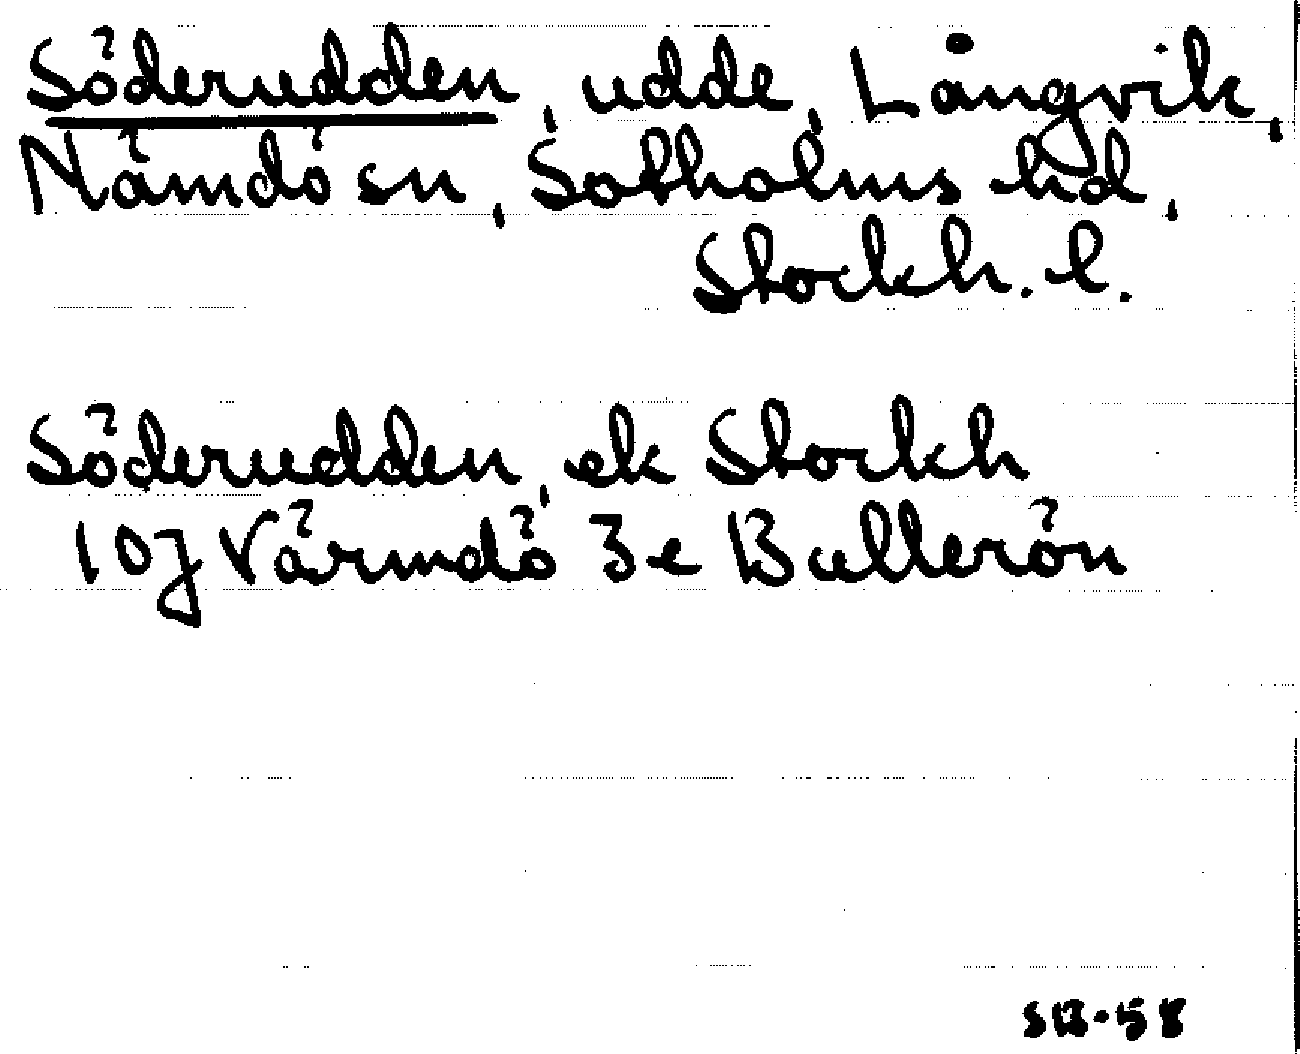 Söderudden, udde, Långvik,
Nämdö sn, Sotholms hd,
Stockh. l.
Söderudden, ek Stockh
10j Värmdö 3e Bullerön
SB-58